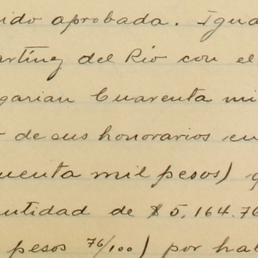 ido aprobada. Igua
artínez del Río con el
garian Cuarenta mi
de sus honorarios en
uenta mil pesos) q
ntidad de $5,164.76
pesos 76/100) por hab